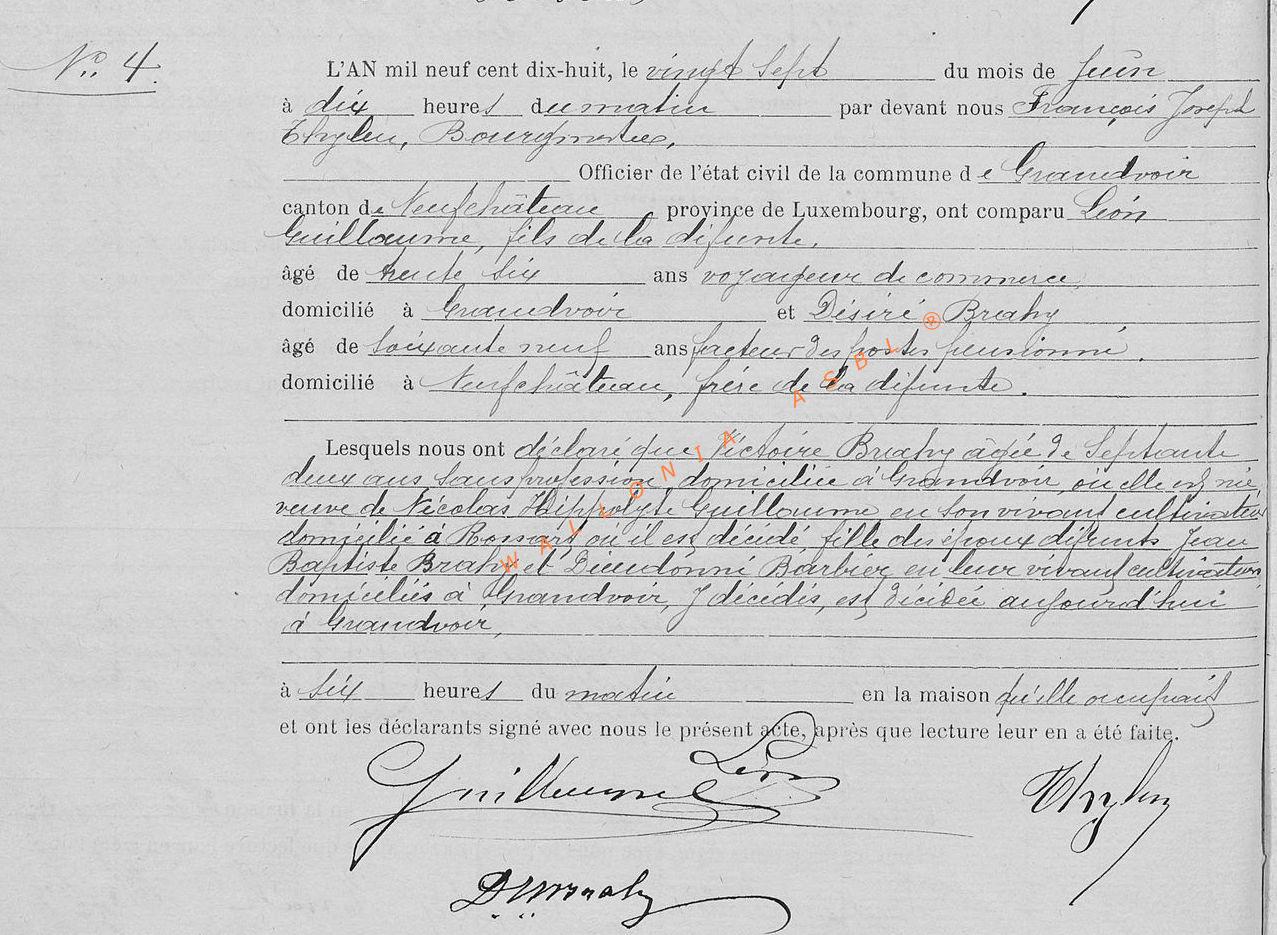 N° 4.
L'AN mil neuf cent dix-huit, le vingt sept du mois de Juin
à dix heures du matin par devant nous François Joseph
Thylen, Bourgmestre,
Officier de l'état civil de la commune de Grandvoir
canton de Neufchâteau province de Luxembourg, ont comparu Léon
Guillaume, fils de la défunte,
âgé de trente six ans voyageur de commerce,
domicilié à Grandvoir et Désiré Brahy
âgé de soixante neuf ans facteur des postes pensionné,
domicilié à Neufchâteau, frère de la défunte.
Lesquels nous ont déclaré que Victoire Brahy âgée de septante
deux ans sans profession domiciliée à Grandvoir, où elle est née
veuve de Nicolas Hippolyte Guillaume en son vivant cultivateur
domicilié à Rossart où il est décédé fille des époux défunts Jean
Baptiste Brahy et Dieudonné Barbier en leur vivant cultivateurs
domiciliés à Grandvoir, y décédés, est décédée aujourd'hui
à Grandvoir,
à six heures du matin en la maison qu'elle occupait
et ont les déclarants signé avec nous le présent acte, après que lecture leur en a été faite.
Guillaume Léon
Thylen
D Brahy
WALLONIA ASBL ®